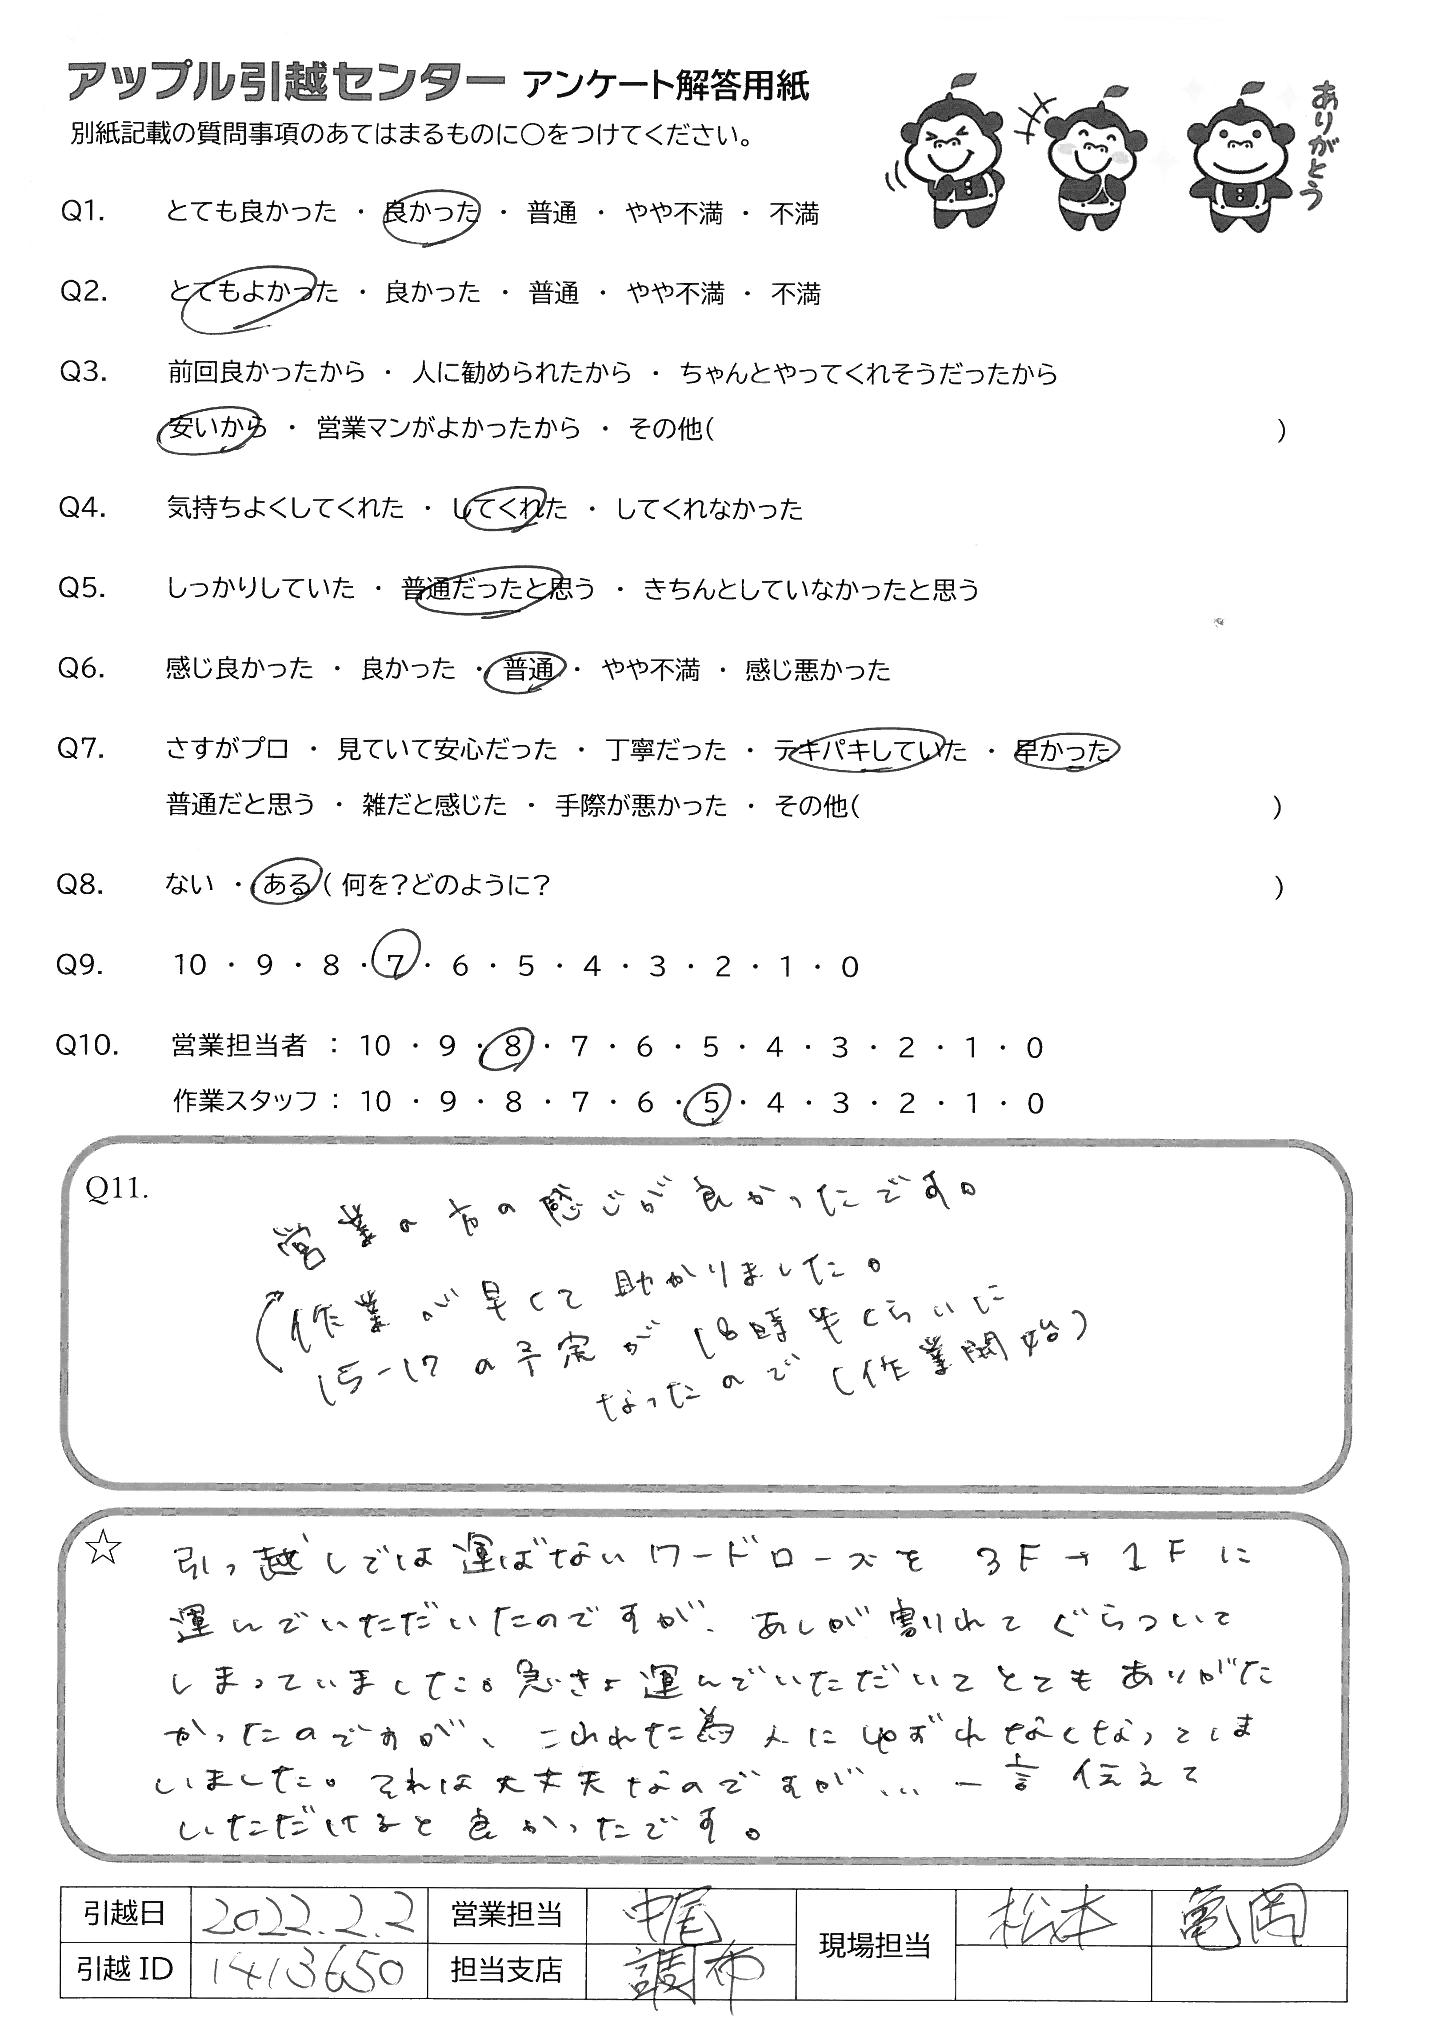 アップル引越センター アンケート解答用紙
別紙記載の質問事項のあてはまるものに○をつけてください。
ありがとう
Q1. とても良かった ・ 良かった ・ 普通 ・ やや不満 ・ 不満
Q2. とてもよかった ・ 良かった ・ 普通 ・ やや不満 ・ 不満
Q3. 前回良かったから ・ 人に勧められたから ・ ちゃんとやってくれそうだったから
安いから ・ 営業マンがよかったから ・ その他( )
Q4. 気持ちよくしてくれた ・ してくれた ・ してくれなかった
Q5. しっかりしていた ・ 普通だったと思う ・ きちんとしていなかったと思う
Q6. 感じ良かった ・ 良かった ・ 普通 ・ やや不満 ・ 感じ悪かった
Q7. さすがプロ ・ 見ていて安心だった ・ 丁寧だった ・ テキパキしていた ・ 早かった
普通だと思う ・ 雑だと感じた ・ 手際が悪かった ・ その他( )
Q8. ない ・ ある ( 何を?どのように? )
Q9. 10 ・ 9 ・ 8 ・ 7 ・ 6 ・ 5 ・ 4 ・ 3 ・ 2 ・ 1 ・ 0
Q10. 営業担当者 : 10 ・ 9 ・ 8 ・ 7 ・ 6 ・ 5 ・ 4 ・ 3 ・ 2 ・ 1 ・ 0
作業スタッフ : 10 ・ 9 ・ 8 ・ 7 ・ 6 ・ 5 ・ 4 ・ 3 ・ 2 ・ 1 ・ 0
Q11.
営業の方の感じが良かったです。
作業が早くて助かりました。
15-17の予定が18時半くらいに
なったので(作業開始)
☆ 引っ越しでは運ばないワードローズを3F→1Fに
運んでいただいたのですが、あしが割れてぐらついて
しまっていました。急きょ運んでいただいてとてもありがた
かったのですが、こわれた為人にゆずれなくなってしま
いました。それは大丈夫なのですが... 一言伝えて
いただけると良かったです。
引越日 2022.2.2 営業担当 中尾 現場担当 松本 亀岡
引越ID 1413650 担当支店 調布